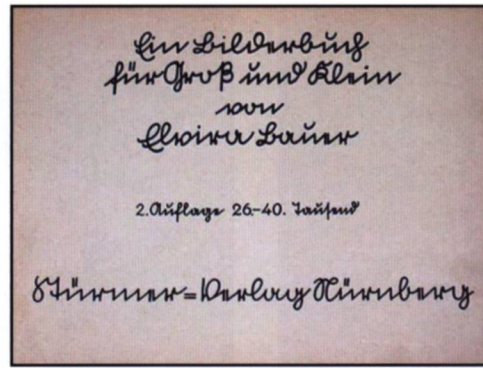 Ein Bilderbuch
für Groß und Klein
von
Elvira Bauer
2. Auflage 26-40. Tausend
Stürmer=Verlag Nürnberg